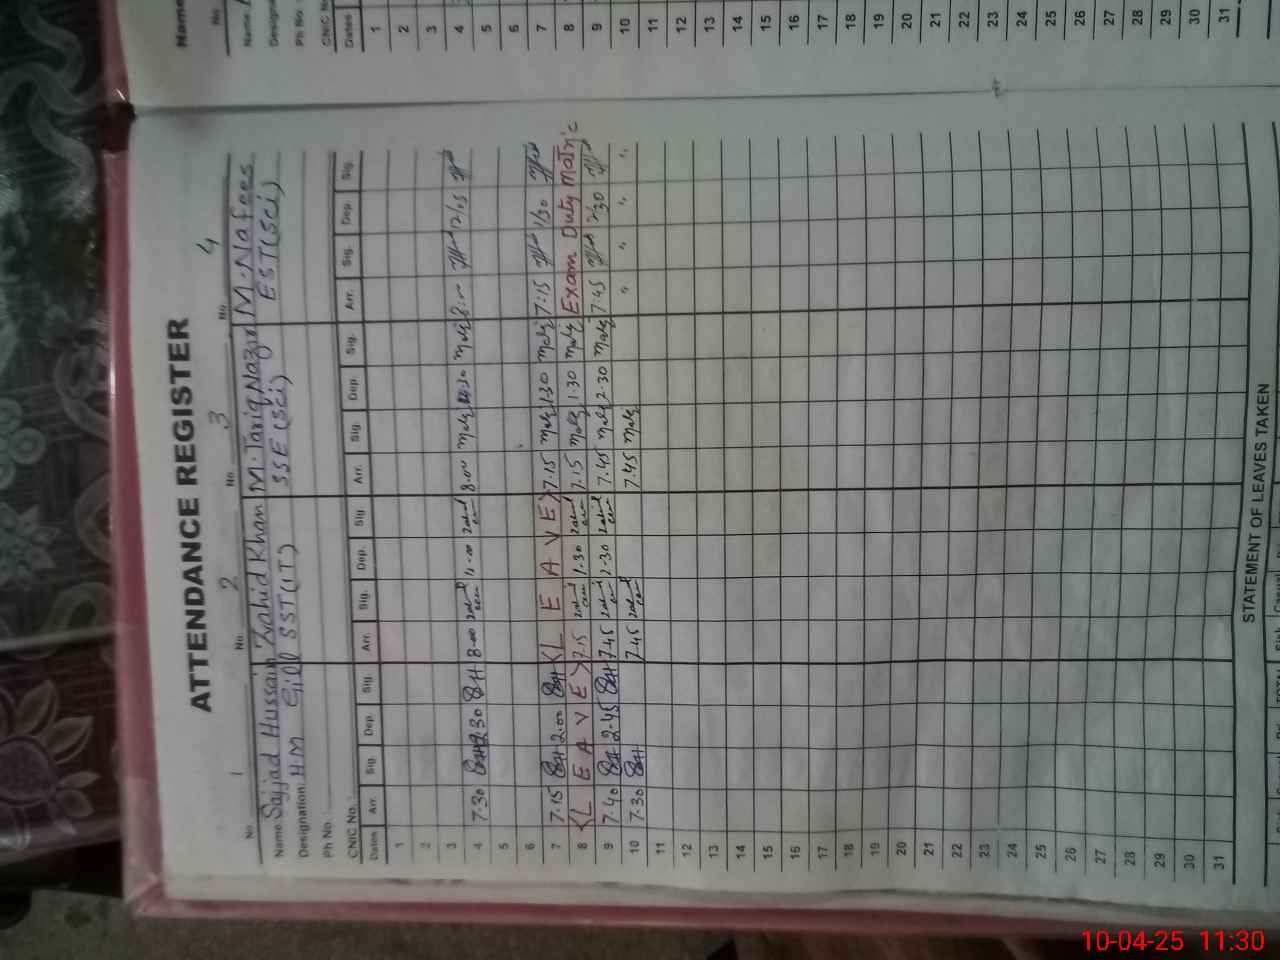 ATTENDANCE REGISTER
No. 1 No. 2 No. 3 No. 4
Name Sajjad Hussain Zahid Khan M. Tariq Nazir M. Nafees
Designation: H.M Gill SST(IT) SSE (Sci) EST(Sci)
Ph No.
CNIC No.
Dates Arr. Sig. Dep. Sig. Arr. Sig. Dep. Sig. Arr. Sig. Dep. Sig. Arr. Sig. Dep. Sig.
1
2
3
4 7.30 2.30 8.00 8.00 12/05
5
6
7 7.15 2.00 < L E A V E > 7.15 1.30 7:15 1/30
8 < L E A V E > 7.15 1.30 7.15 1.30 Exam Duty Matric
9 7.40 2.45 7.45 2.30 7.45 2.30 7:45 2/30
10 7.30 7.45 7.45 " " " "
11
12
13
14
15
16
17
18
19
20
21
22
23
24
25
26
27
28
29
30
31
STATEMENT OF LEAVES TAKEN
Name
No.
Name
Ph No.
Dates
1
2
3
4
5
6
7
8
9
10
11
12
13
14
15
16
17
18
19
20
21
22
23
24
25
26
27
28
29
30
31
10-04-25 11:30